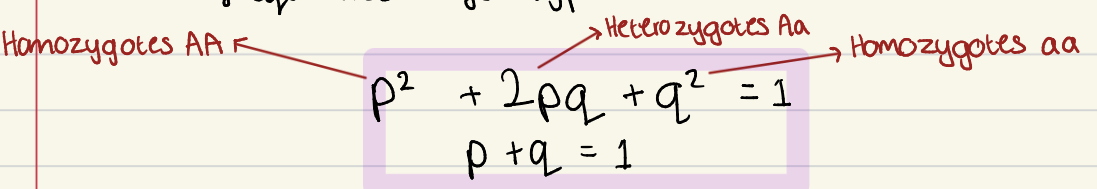 Homozygotes AA
Heterozygotes Aa
Homozygotes aa
p² + 2pq + q² = 1
p + q = 1